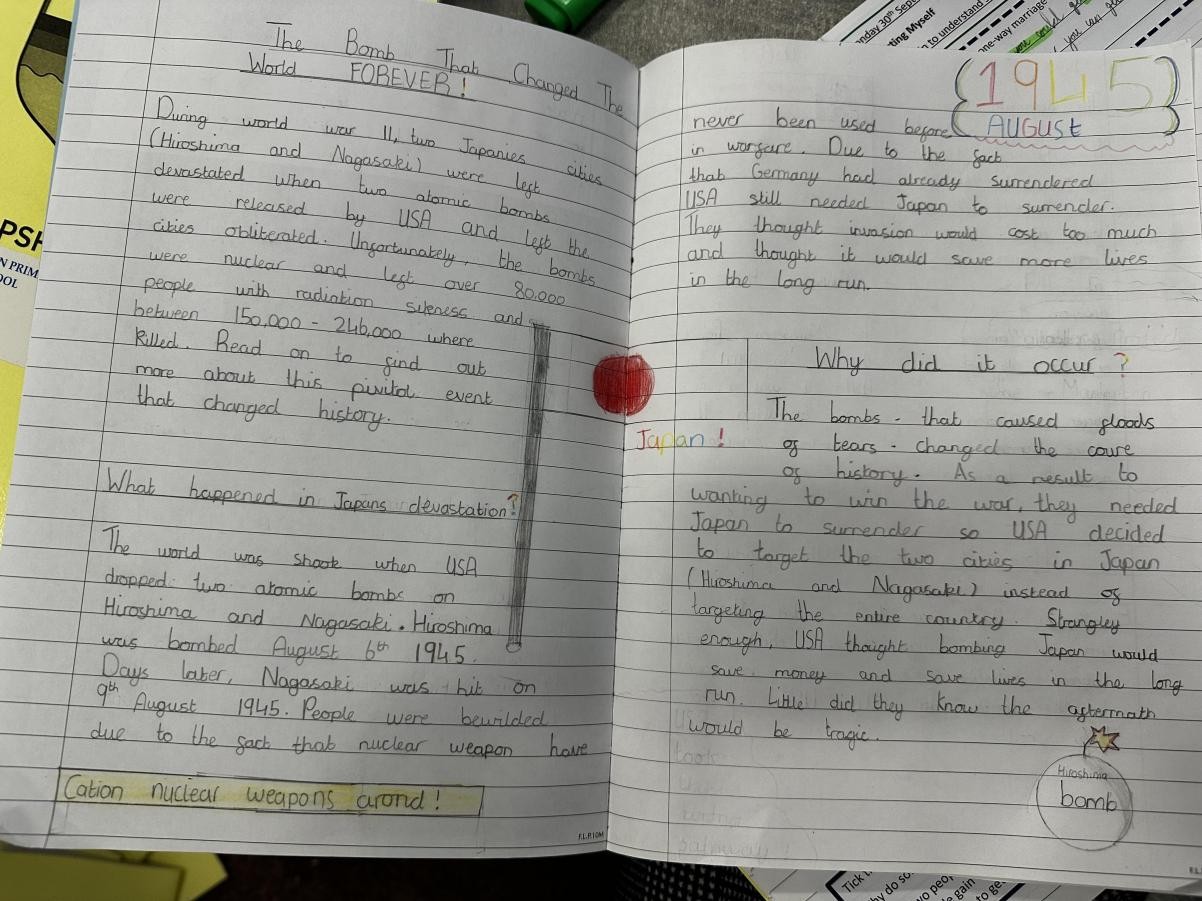 The Bomb That Changed The
World FOREVER!
During world war II, two Japanies cities
(Hiroshima and Nagasaki) were left
devastated when two atomic bombs
were released by USA and left the
cities obliterated. Unfortunately, the bombs
were nuclear and left over 80,000
people with radiation sikness and
between 150,000 - 246,000 where
killed. Read on to find out
more about this pivitol event
that changed history.
What happened in Japans devastation?
The world was shook when USA
dropped two atomic bombs on
Hiroshima and Nagasaki. Hiroshima
was bombed August 6th 1945.
Days later, Nagasaki was hit on
9th August 1945. People were bewilded
due to the fact that nuclear weapon have
Cation nuclear weapons arond!
F.L.P.10M
1945
AUGUST
never been used before
in warfare. Due to the fact
that Germany had already surrendered
USA still needed Japan to surrender.
They thought invasion would cost too much
and thought it would save more lives
in the long run.
Japan!
Why did it occur?
The bombs - that caused floods
of tears - changed the coure
of history. As a result to
wanting to win the war, they needed
Japan to surrender so USA decided
to target the two cities in Japan
(Hiroshima and Nagasaki) instead of
targeting the entire country. Strangley
enough, USA thought bombing Japan would
save money and save lives in the long
run. Little did they know the aftermath
would be tragic.
Hiroshima
bomb
nday 30th Sep
ting Myself
n to understand
one-way marriage
PSH
N PRIM
OOL
Tick t
hy do so
wo peop
e gain
to ge